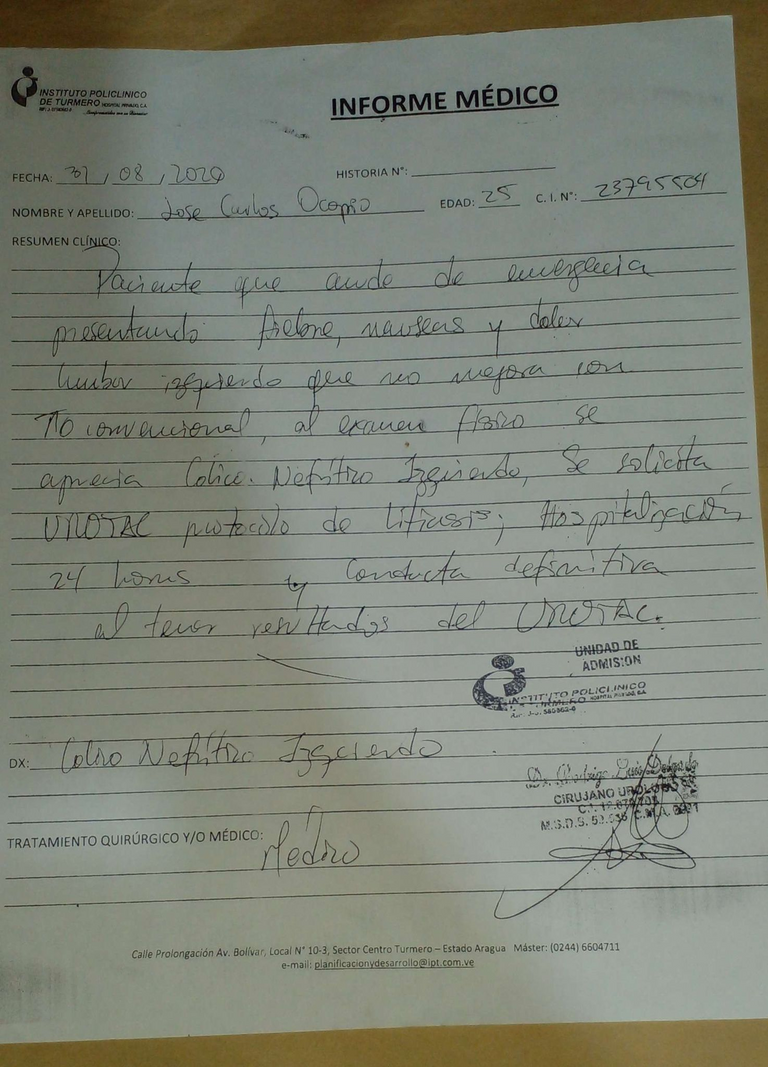 INSTITUTO POLICLINICO
DE TURMERO HOSPITAL PRIVADO, C.A.
INFORME MÉDICO
FECHA: 31, 08, 2020 HISTORIA N°:
NOMBRE Y APELLIDO: Jose Carlos EDAD: 25 C. I. N°: 23795504
RESUMEN CLÍNICO:
Paciente que acude de emergencia
presentando fiebre, nauseas y dolor
lumbar izquierdo que no mejora con
TTO convencional, al examen fisico se
aprecia Colico Nefritico Izquierdo, Se solicita
UROTAC protocolo de litiasis; Hospitalización
24 horas y Conducta definitiva
al tener resultados del UROTAC.
UNIDAD DE
ADMISION
INSTITUTO POLICLINICO
DE TURMERO HOSPITAL PRIVADO, C.A.
DX: Colico Nefritico Izquierdo
CIRUJANO UROLOGO
M.S.D.S.
TRATAMIENTO QUIRÚRGICO Y/O MÉDICO: Medico
Calle Prolongación Av. Bolívar, Local N° 10-3, Sector Centro Turmero – Estado Aragua Máster: (0244) 6604711
e-mail: planificacionydesarrollo@ipt.com.ve